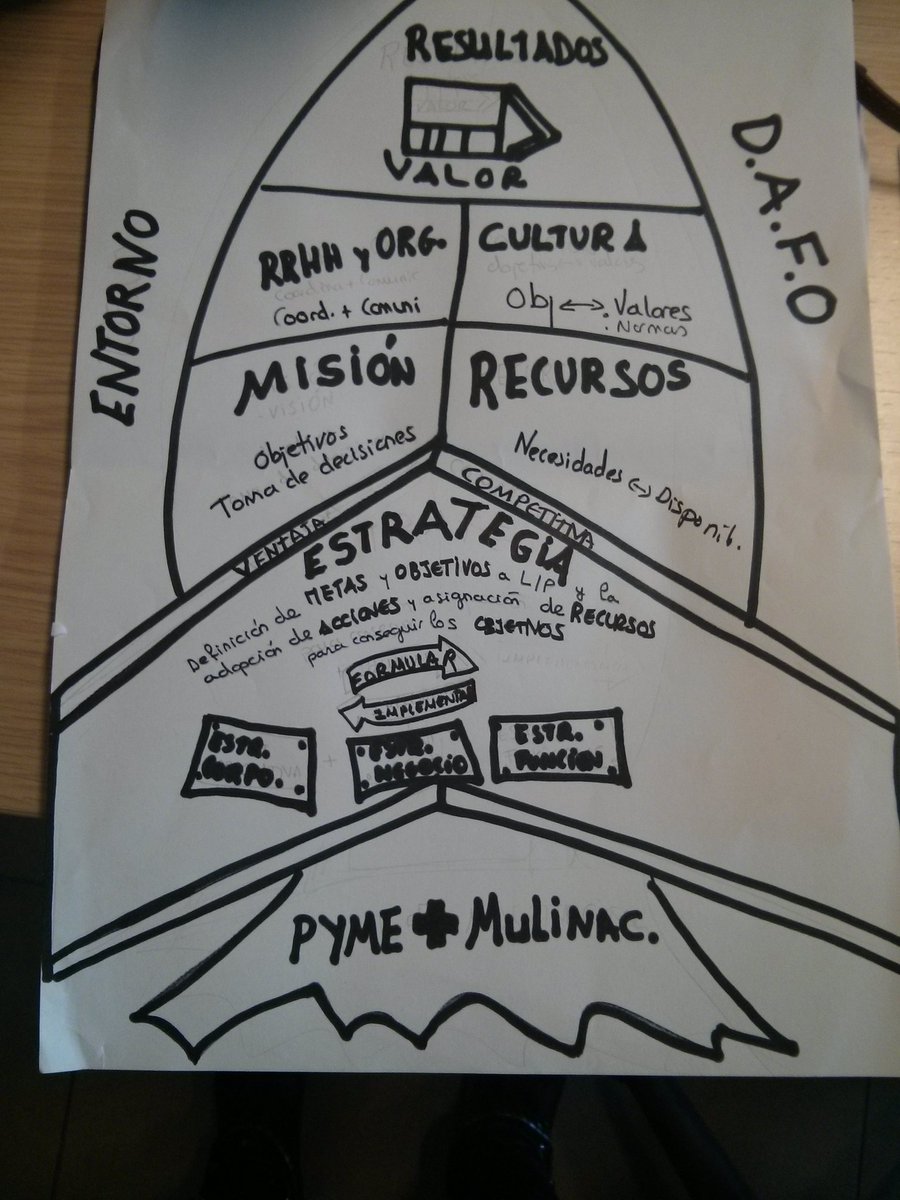 RESULTADOS
VALOR
ENTORNO
D.A.F.O
RRHH y ORG.
Coord. + Comuni
CULTURA
Obj ↔ . Valores
. Normas
MISIÓN
VISIÓN
Objetivos
Toma de decisiones
RECURSOS
Necesidades ↔ Disponib.
VENTAJA
COMPETITIVA
ESTRATEGIA
Definición de METAS y OBJETIVOS a L/P y la
adopción de ACCIONES y asignación de RECURSOS
para conseguir los OBJETIVOS
FORMULAR
IMPLEMENTA
ESTR.
CORPO.
ESTR.
NEGOCIO
ESTR.
FUNCIÓN
PYME + MULINAC.